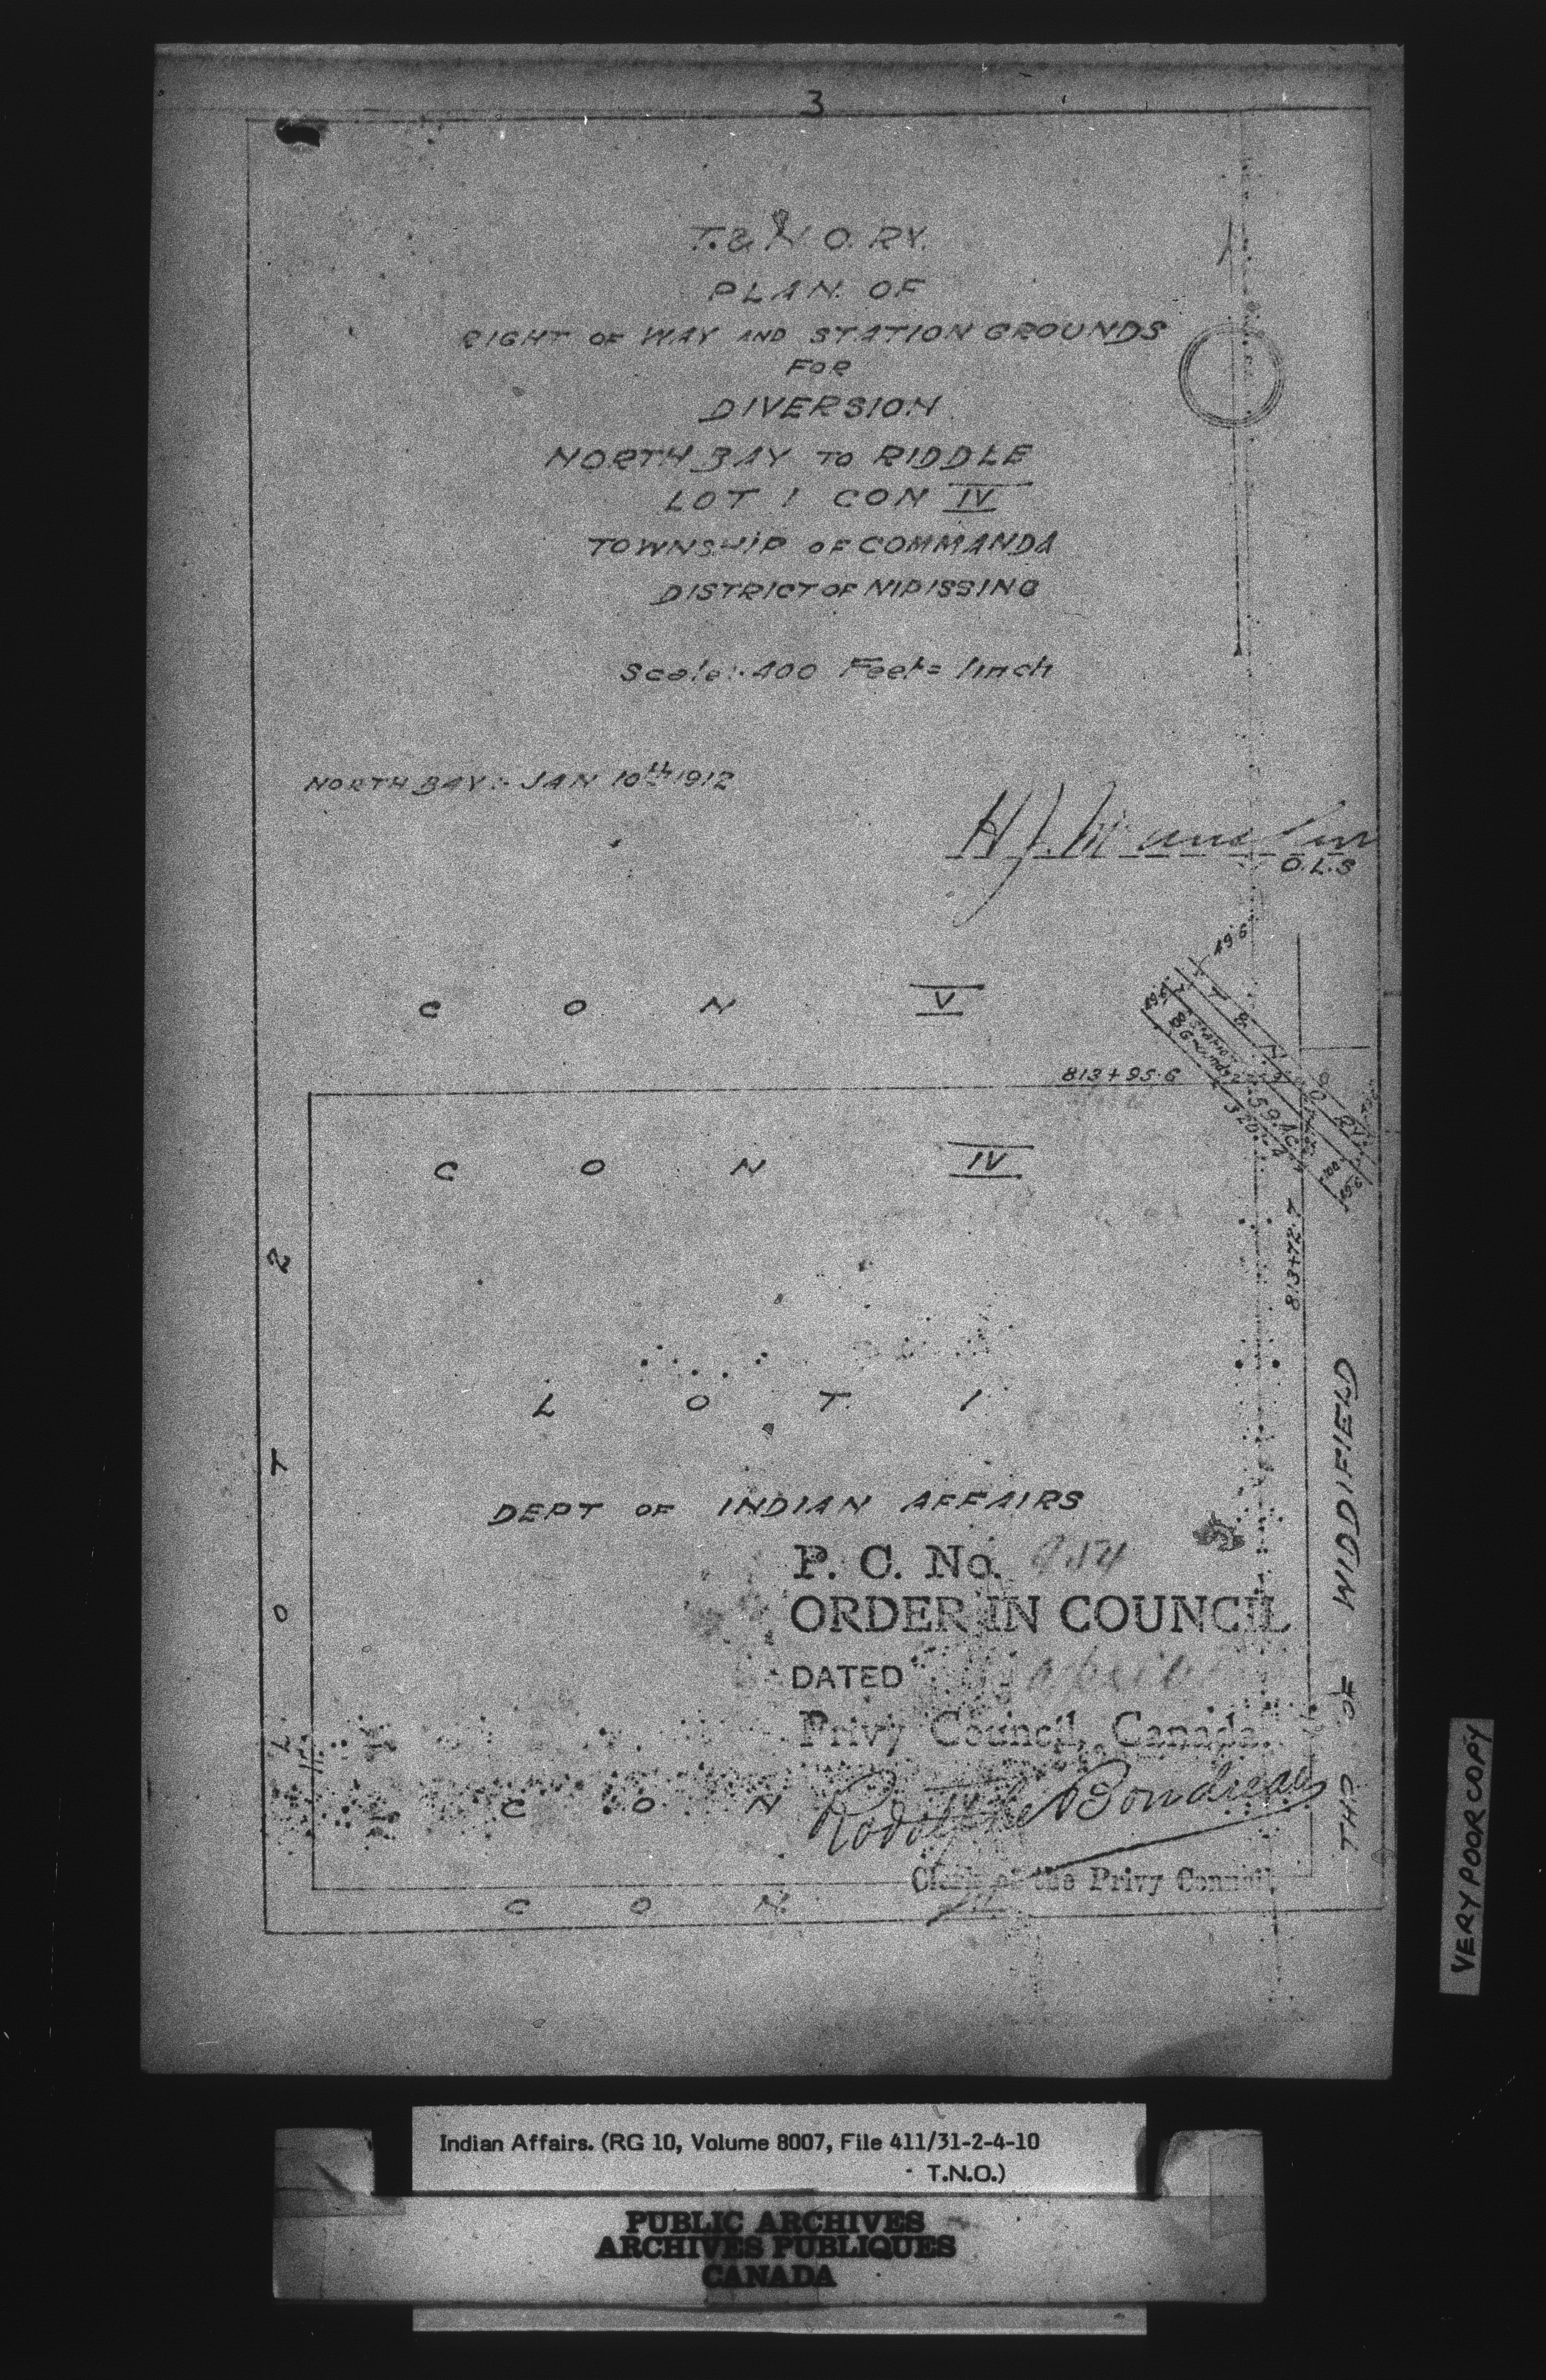 3
T. & N. O. RY.
PLAN OF
RIGHT OF WAY AND STATION GROUNDS
FOR
DIVERSION
NORTH BAY TO RIDDLE
LOT 1 CON IV
TOWNSHIP OF COMMANDA
DISTRICT OF NIPISSING
Scale:- 400 Feet = 1 inch
NORTH BAY:- JAN 10th 1912
H J
O.L.S
49.6
T & N O RY
Station
Grounds
CON V
813+95.6
CON IV
813+72.7
LOT 2
LOT 1
TWP OF WIDDIFIELD
DEPT OF INDIAN AFFAIRS
P. C. No.
ORDER IN COUNCIL
DATED April
Privy Council, Canada.
CON IV
Rodolphe Boudreau
Clerk of the Privy Council
CON III
VERY POOR COPY
Indian Affairs. (RG 10, Volume 8007, File 411/31-2-4-10
T.N.O.)
PUBLIC ARCHIVES
ARCHIVES PUBLIQUES
CANADA